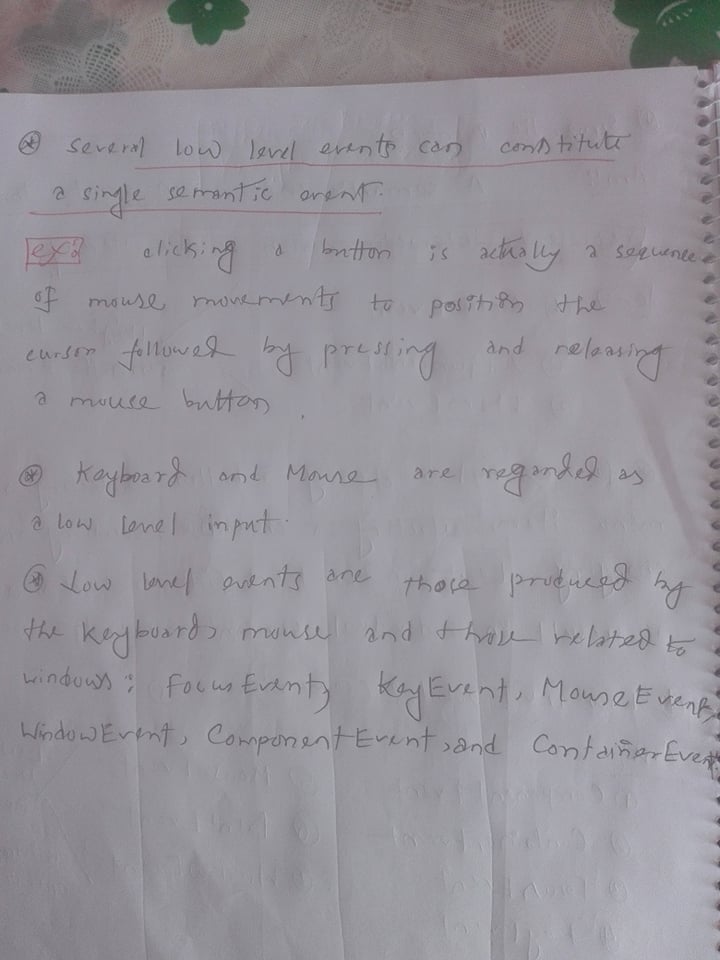 ⊛ several low level events can constitute
a single semantic event.
ex: clicking a button is actually a sequence
of mouse movements to position the
cursor followed by pressing and releasing
a mouse button.
⊛ Keyboard and Mouse are regarded as
a low level input.
⊛ Low level events are those produced by
the keyboard, mouse and those related to
windows: FocusEvent, KeyEvent, MouseEvent,
WindowEvent, ComponentEvent, and ContainerEvent.